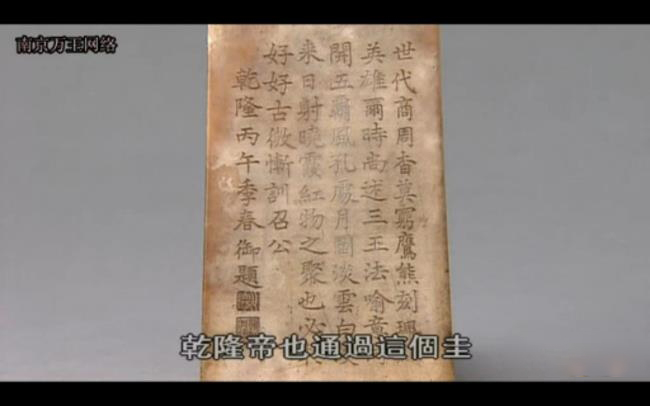 南京万王网络
世代商周杳莫窮鷹熊刻
英雄爾時尚述三王法喻意
開五爾風孔月圓淡雲白
来日射曉霞紅物之聚也必
好好古儆慚訓召公
乾隆丙午季春御題
乾隆帝也通過這個圭